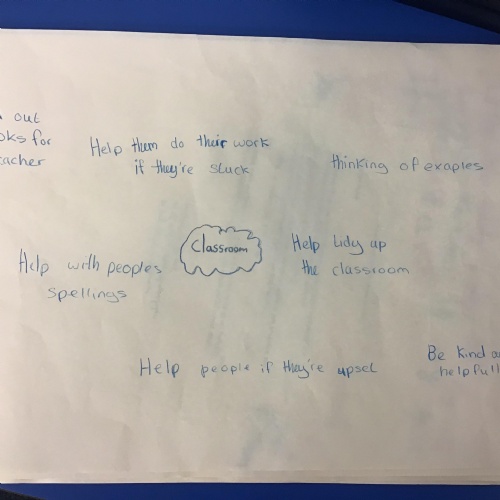 out
oks for
eacher
Help them do their work
if they're stuck
thinking of exaples
Classroom
Help tidy up
the classroom
Help with peoples
spellings
Help people if they're upset
Be kind
helpfull